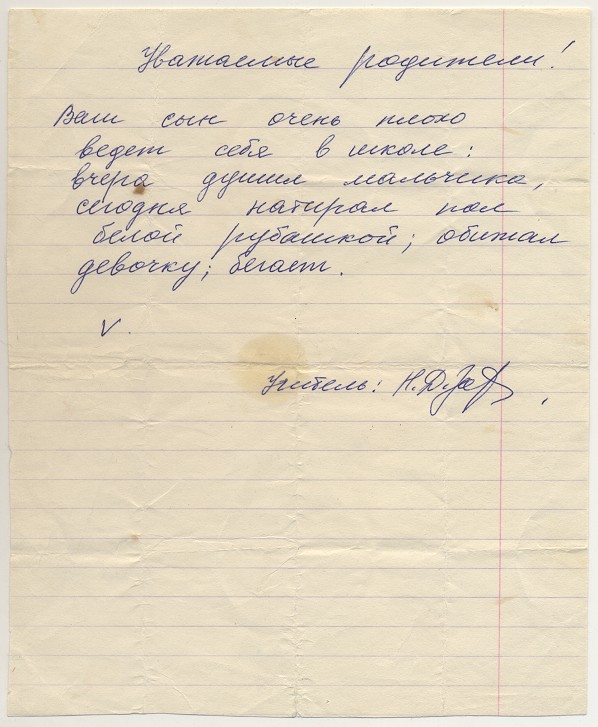 Уважаемые родители!
Ваш сын очень плохо
ведет себя в школе:
вчера душил мальчика,
сегодня натирал пол
белой рубашкой; обижал
девочку; бегает.
V.
Учитель: Н.Д.